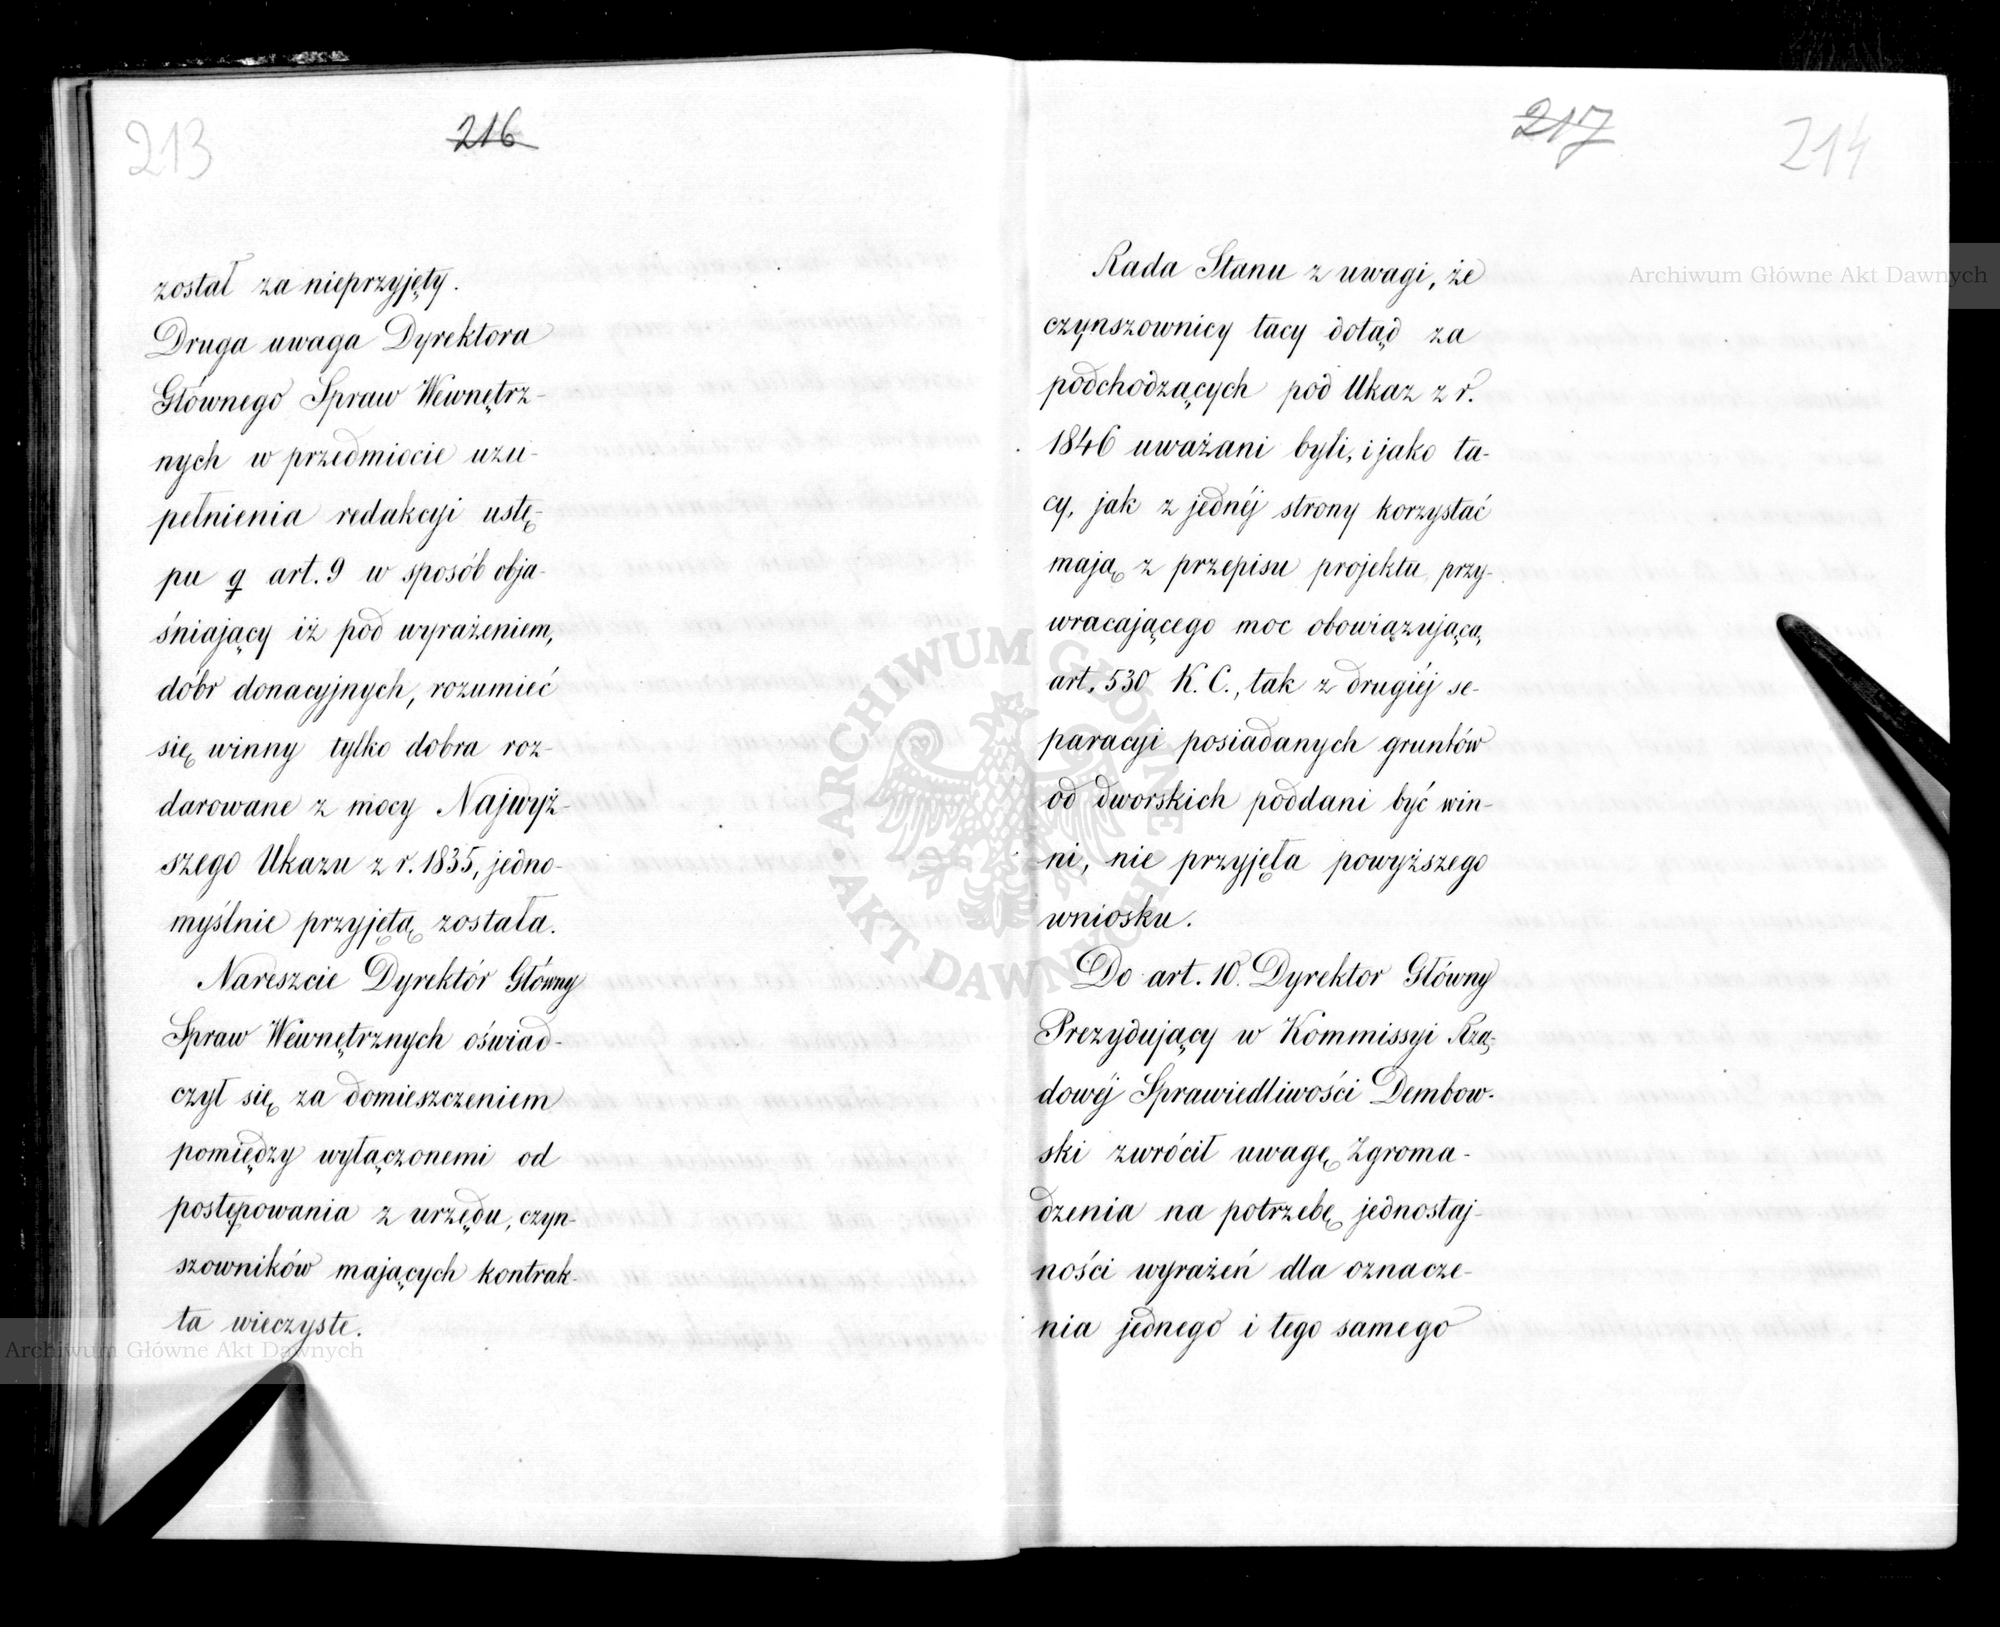 213
216
został za nieprzyjęty.
Druga uwaga Dyrektora
Głównego Spraw Wewnętrz-
nych w przedmiocie uzu-
pełnienia redakcyi ustę-
pu g art. 9 w sposób obja-
śniający iż pod wyrażeniem,
dóbr donacyjnych, rozumieć
się winny tylko dobra roz-
darowane z mocy Najwyż-
szego Ukazu z r. 1835, jedno-
myślnie przyjętą została.
Nareszcie Dyrektór Główny
Spraw Wewnętrznych oświad-
czył się za domieszczeniem
pomiędzy wyłączonemi od
postępowania z urzędu, czyn-
szowników mających kontrak-
ta wieczyste.
217
214
Rada Stanu z uwagi, że
czynszownicy tacy dotąd za
podchodzących pod Ukaz z r.
1846 uważani byli, i jako ta-
cy, jak z jednéj strony korzystać
mają z przepisu projektu, przy-
wracającego moc obowiązującą
art. 530 K. C., tak z drugiéj se-
paracyi posiadanych gruntów
od dworskich poddani być win-
ni, nie przyjęła powyższego
wniosku.
Do art. 10. Dyrektor Główny
Prezydujący w Kommissyi Rzą-
dowéj Sprawiedliwości Dembow-
ski zwrócił uwagę Zgroma-
dzenia na potrzebę jednostaj-
ności wyrażeń dla oznacze-
nia jednego i tego samego
Archiwum Główne Akt Dawnych
Archiwum Główne Akt Dawnych
ARCHIWUM GŁÓWNE AKT DAWNYCH